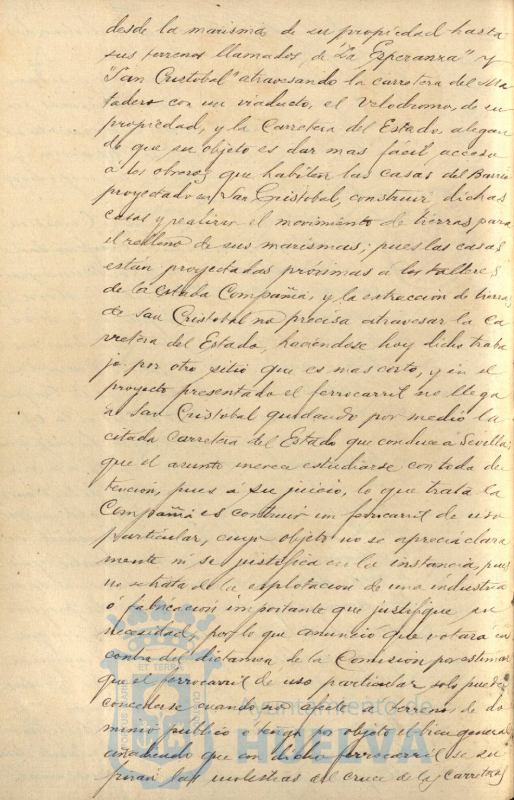 desde la marisma de su propiedad hasta
sus terrenos llamados de "La Esperanza" y
"San Cristobal" atravesando la carretera del Ma-
tadero con un viaducto, el Velodromo, de su
propiedad, y la Carretera del Estado, alegan
do que su objeto es dar mas fácil, acceso
a los obreros que habiten las casas del Barrio
proyectado en San Cristobal, construir dichas
casas y realizar el movimiento de tierras para
el relleno de sus marismas; pues las casas
están proyectadas próximas á los talleres
de la citada Compañia, y la extracción de tierras
de San Cristobal no precisa atravesar la Ca
rretera del Estado, haciéndose hoy dicho traba
jo por otro sitio que es mas corto, y en el
proyecto presentado el ferrocarril no llega
a San Cristobal quedando por medio la
citada Carretera del Estado que conduce a Sevilla;
que el asunto merece estudiarse con toda de
tencion, pues á su juicio, lo que trata la
Compañia es construir un ferrocarril de uso
particular, cuyo objeto no se aprecia clara
mente ni se justifica en la instancia, pues
no se trata de la explotacion de una industria
ó fabricacion importante que justifique su
necesidad, por lo que anunció que votará en
contra del dictamen de la Comision por estimar
que el ferrocarril de uso particular solo puede
concederse cuando no afecte a terrenos de do
minio público o tenga por objeto el bien general
añadiendo que en dicho ferrocarril se su
primen las molestias del cruce de las Carreteras
ET TERRÆ
Ayuntamiento de
HUELVA